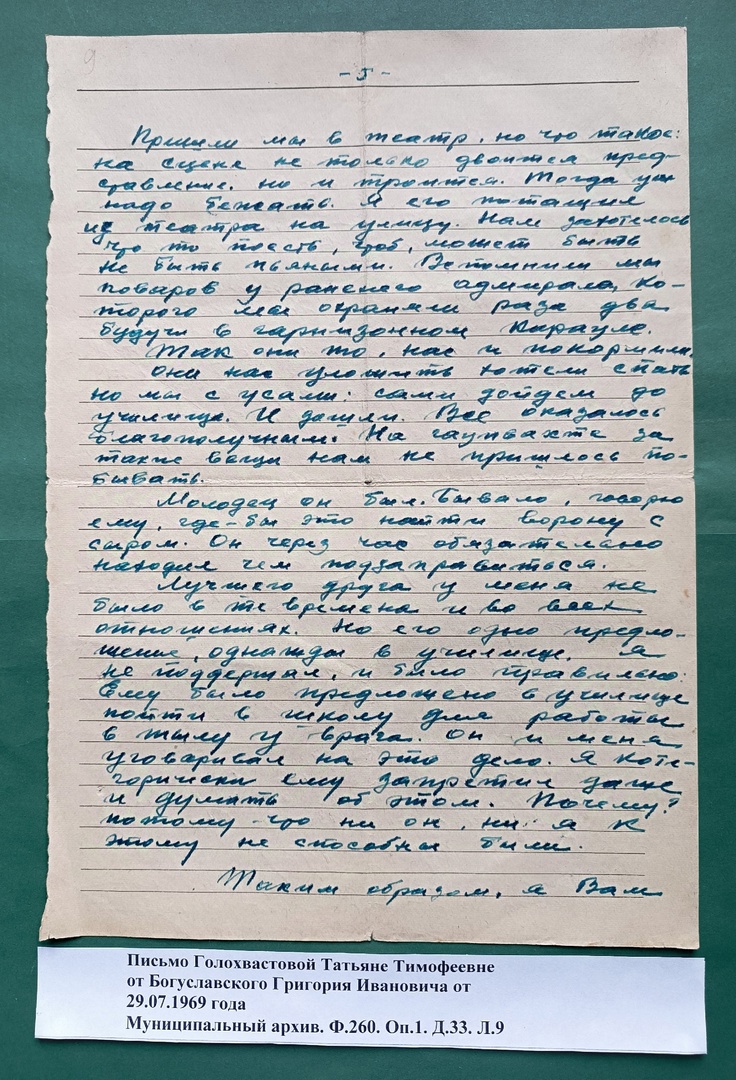 9
- 5 -
Пришли мы в театр, но что такое:
на сцене не только двоится пред-
ставление, но и троится. Тогда уж
надо бежать. Я его потащил
из театра на улицу. Нам захотелось
что то поесть, чтоб, может быть
не быть пьяными. Вспомнили мы
поваров у раненого адмирала, ко-
торого мы охраняли раза два
будучи в гарнизонном карауле.
Так они то, нас и покормили.
Они нас уложить хотели спать
но мы с усами: сами дойдем до
училища. И дошли. Все оказалось
благополучным. На гауптвахте за
такие вещи нам не пришлось по-
бывать.
Молодец он был. Бывало, говорю
ему, где-бы это найти ворону с
сыром. Он через час обязательно
находил чем подзаправиться.
Лучшего друга у меня не
было в те времена и во всех
отношениях. Но его одно предло-
жение, однажды в училище, я
не поддержал, и было правильно:
Ему было предложено в училище
пойти в школу для работы
в тылу у врага. Он и меня
уговаривал на это дело. Я кате-
горически ему запретил даже
и думать об этом. Почему?
потому что ни он, ни я к
этому не способны были.
Таким образом, я Вам
Письмо Голохвастовой Татьяне Тимофеевне
от Богуславского Григория Ивановича от
29.07.1969 года
Муниципальный архив. Ф.260. Оп.1. Д.33. Л.9